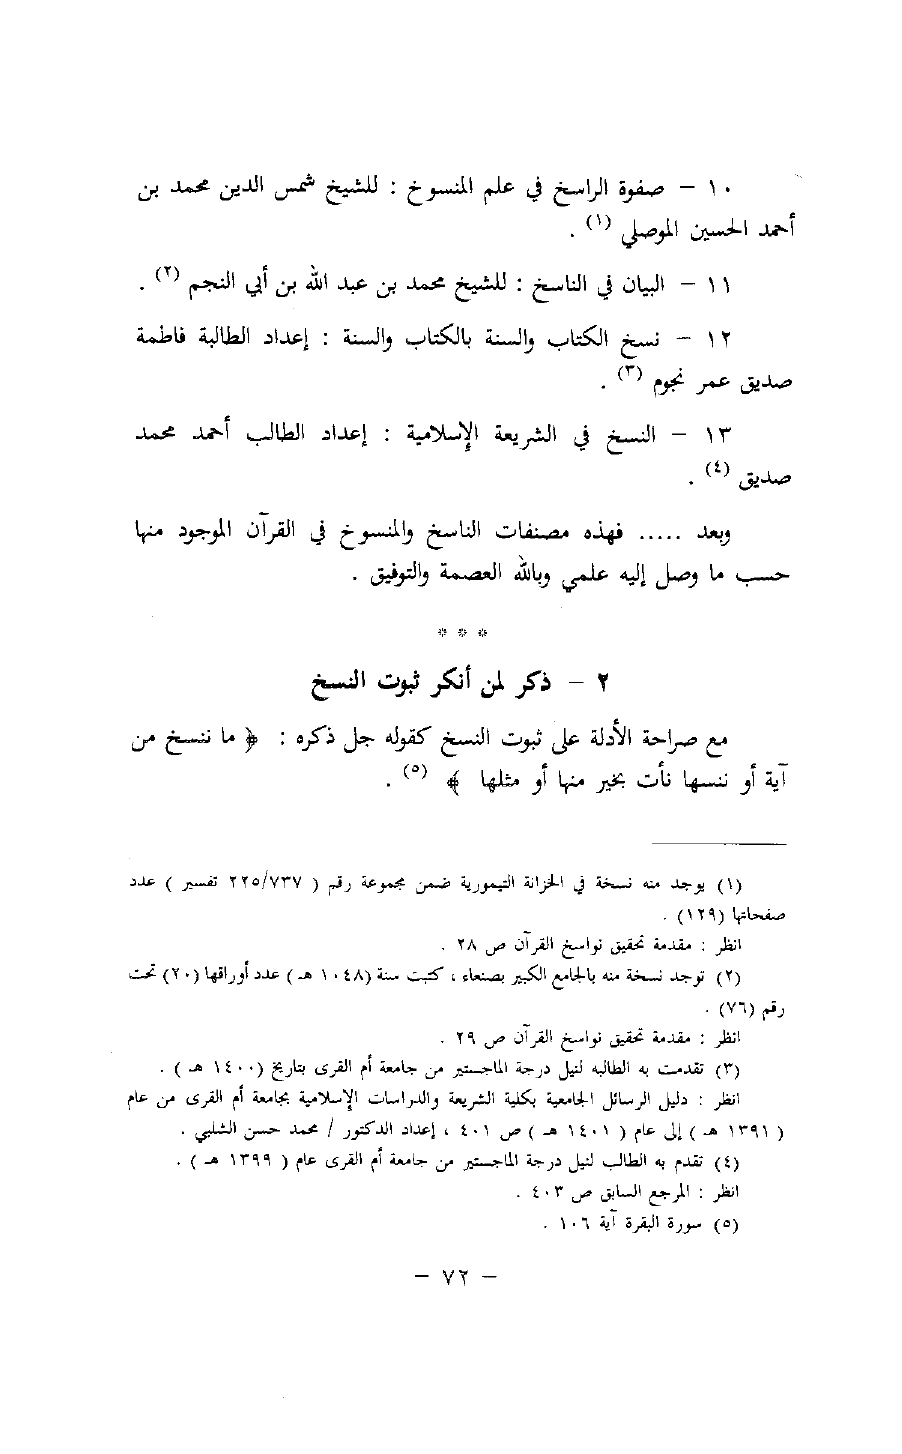 ١٠ – صفوة الراسخ في علم المنسوخ : للشيخ شمس الدين محمد بن
أحمد الحسين الموصلي (١) .
١١ – البيان في الناسخ : للشيخ محمد بن عبد الله بن أبي النجم (٢) .
١٢ – نسخ الكتاب والسنة بالكتاب والسنة : إعداد الطالبة فاطمة
صديق عمر نجوم (٣) .
١٣ – النسخ في الشريعة الإسلامية : إعداد الطالب أحمد محمد
صديق (٤) .
وبعد ..... فهذه مصنفات الناسخ والمنسوخ في القرآن الموجود منها
حسب ما وصل إليه علمي وبالله العصمة والتوفيق .
* * *
٢ – ذكر لمن أنكر ثبوت النسخ
مع صراحة الأدلة على ثبوت النسخ كقوله جل ذكره : ﴿ ما ننسخ من
آية أو ننسها نأت بخير منها أو مثلها ﴾ (٥) .
(١) يوجد منه نسخة في الخزانة التيمورية ضمن مجموعة رقم ( ٢٢٥/٧٣٧ تفسير ) عدد
صفحاتها (١٢٩) .
انظر : مقدمة تحقيق نواسخ القرآن ص ٢٨ .
(٢) توجد نسخة منه بالجامع الكبير بصنعاء ، كتبت سنة (١٠٤٨ هـ) عدد أوراقها (٢٠) تحت
رقم (٧٦) .
انظر : مقدمة تحقيق نواسخ القرآن ص ٢٩ .
(٣) تقدمت به الطالبه لنيل درجة الماجستير من جامعة أم القرى بتاريخ (١٤٠٠ هـ ) .
انظر : دليل الرسائل الجامعية بكلية الشريعة والدراسات الإسلامية بجامعة أم القرى من عام
( ١٣٩١ هـ ) إلى عام ( ١٤٠١ هـ ) ص ٤٠١ ، إعداد الدكتور / محمد حسن الشلبي .
(٤) تقدم به الطالب لنيل درجة الماجستير من جامعة أم القرى عام ( ١٣٩٩ هـ ) .
انظر : المرجع السابق ص ٤٠٣ .
(٥) سورة البقرة آية ١٠٦ .
– ٧٢ –